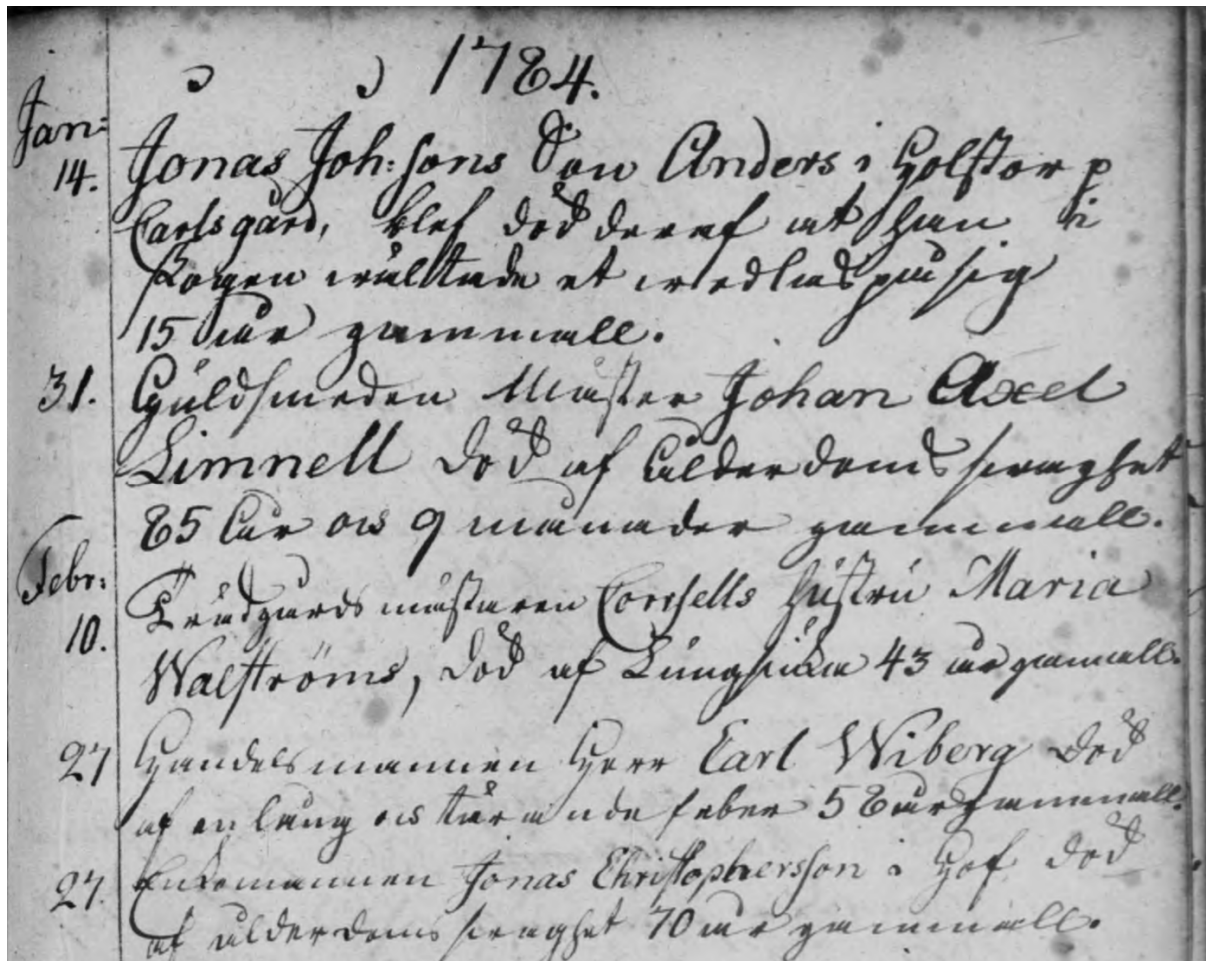 1784.
Jan:
14. Jonas Joh:sons Son Anders i Holstorp
Carlsgård, blef död deraf at han i
skogen wältade et wedlas på sig
15 åar gammall.
31. Guldsmeden Mäster Johan Axel
Limnell död af ålderdoms swaghet
85 åar och 9 månader gammall.
Febr:
10. Krudgårds mästaren hustru Maria
Walströms, död af Lungsiuka 43 åar gammall.
27 Handelsmannen Herr Carl Wiberg död
af en lång och tärande feber 58 åar gammall.
27. Enkomannen Jonas Christophersson i Hof död
af ålderdoms swaghet 70 åar gammall.